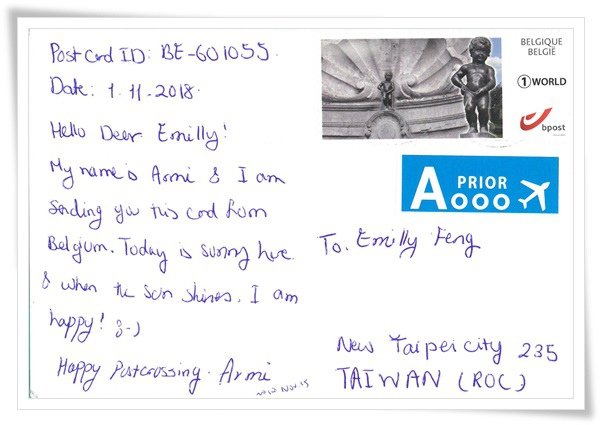 Postcard ID: BE-601055.
Date: 1.11.2018.
Hello Dear Emilly!
My name is Armi & I am
sending you this card from
Belgium. Today is sunny here
& when the sun shines, I am
happy! :-)
Happy Postcrossing. Armi
BELGIQUE
BELGIË
1 WORLD
bpost
A PRIOR
To. Emilly Feng
New Taipei city 235
TAIWAN (ROC)